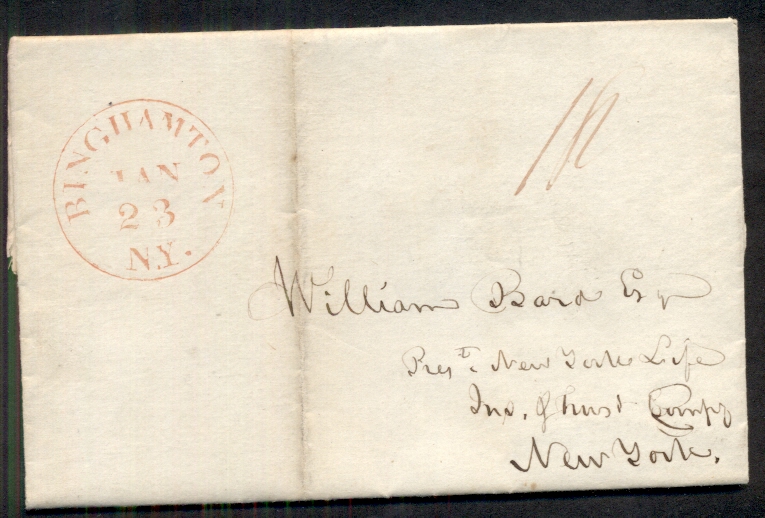 BINGHAMTON
JAN
23
N.Y.
William Bard Esq
Presᵗ. New York Life
Ins. & Trust Compy
New York.